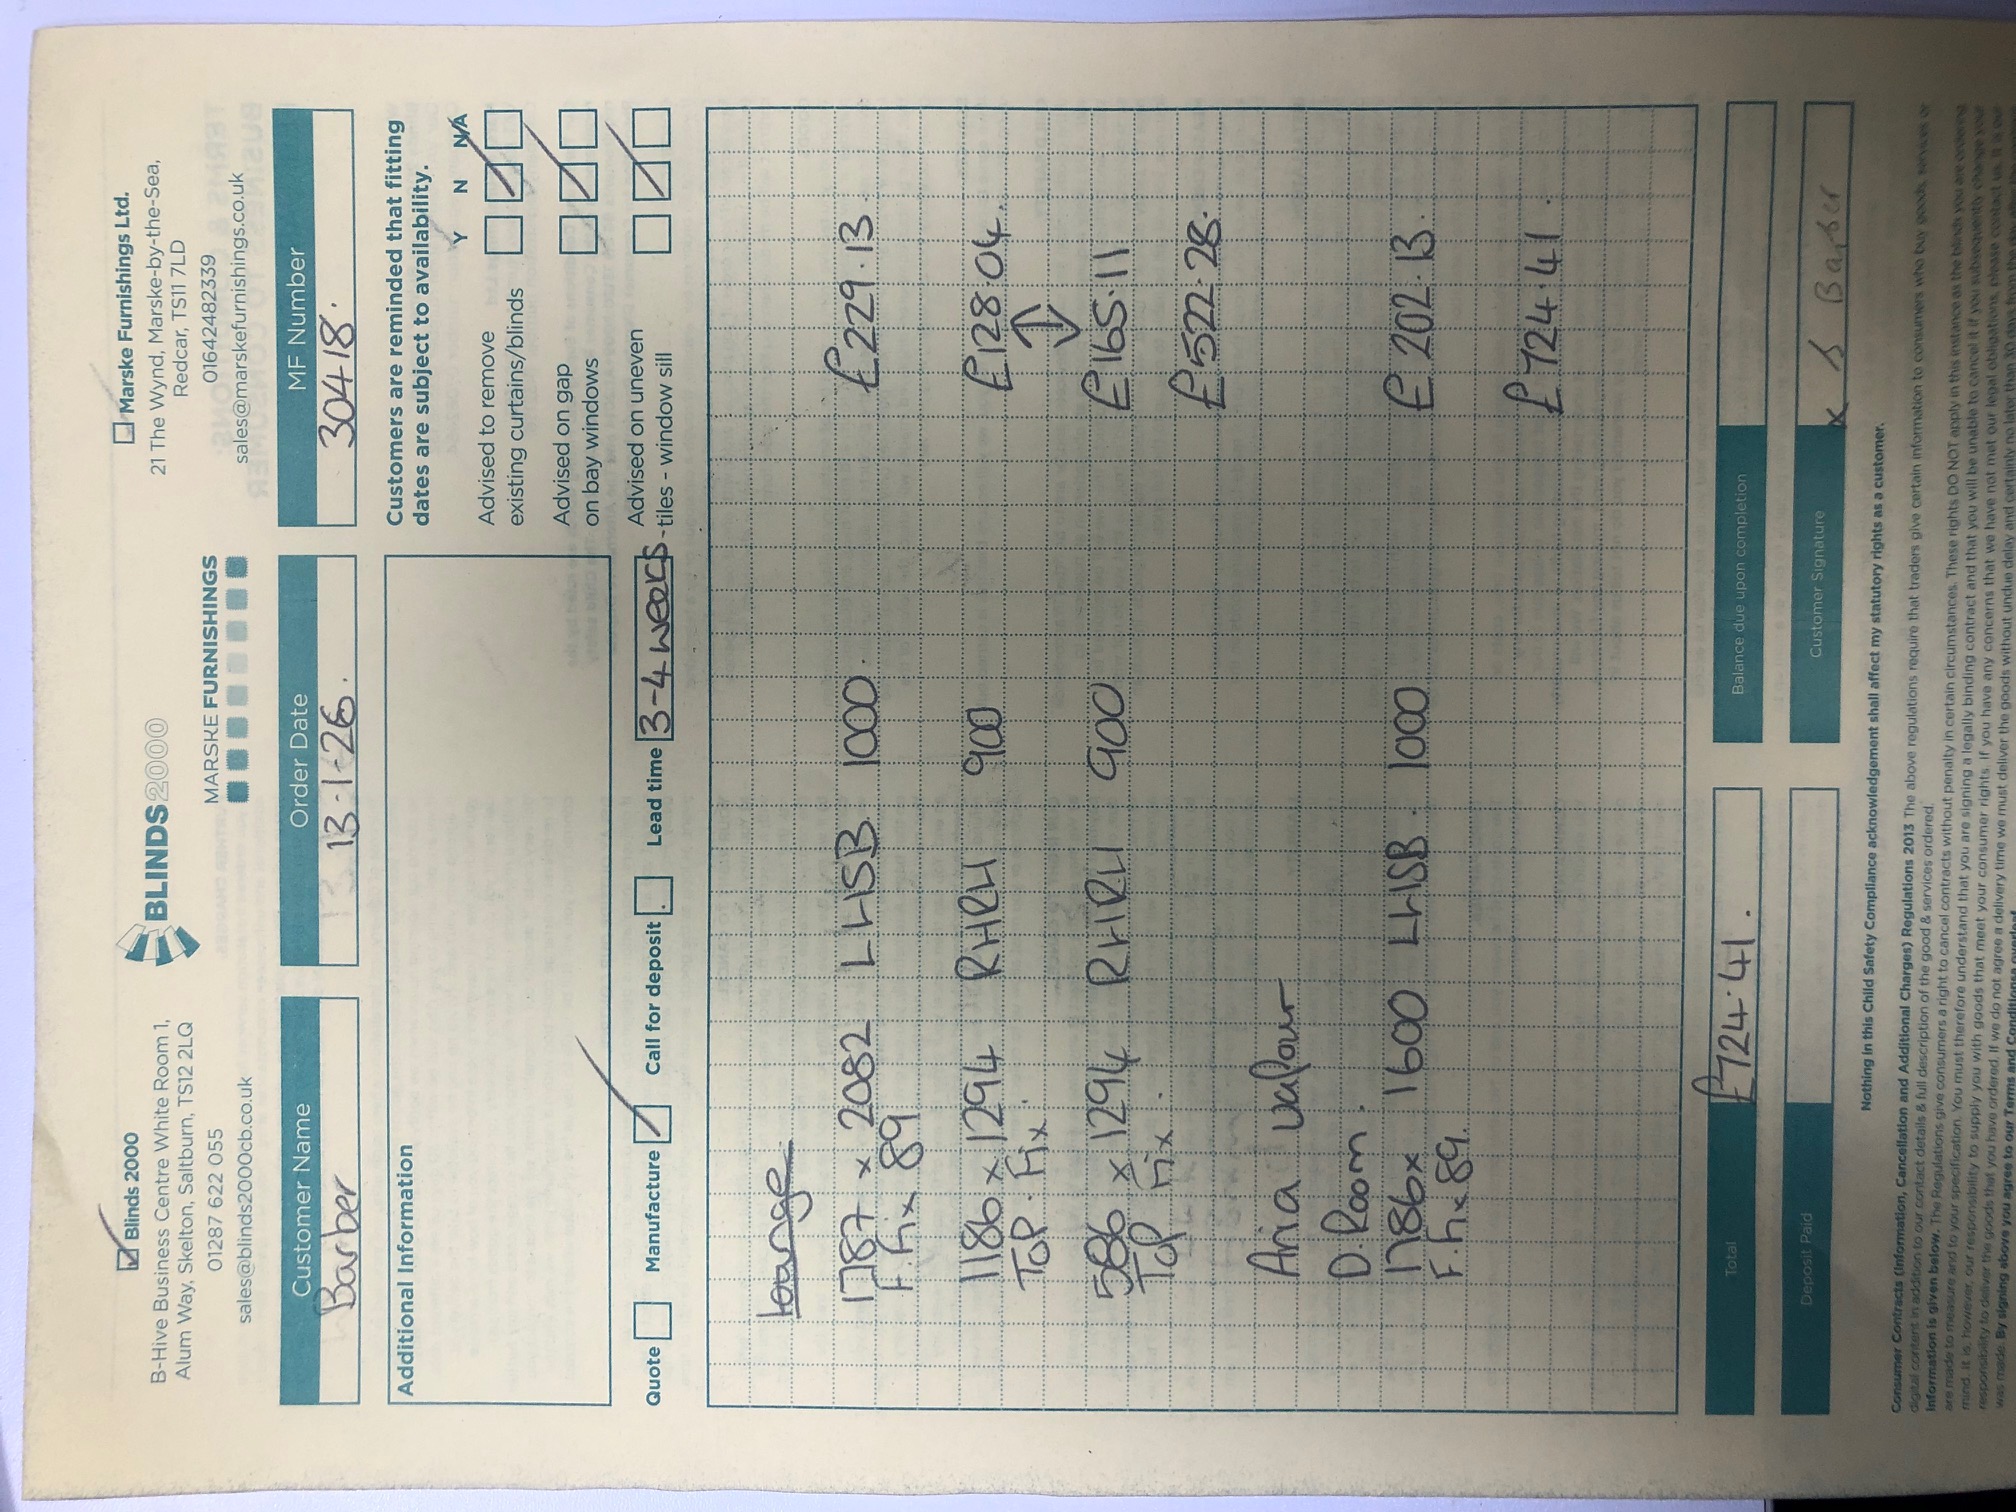 Blinds 2000
B-Hive Business Centre White Room 1,
Alum Way, Skelton, Saltburn, TS12 2LQ
01287 622 055
sales@blinds2000cb.co.uk
BLINDS2000
MARSKE FURNISHINGS
Marske Furnishings Ltd.
21 The Wynd, Marske-by-the-Sea,
Redcar, TS11 7LD
01642482339
sales@marskefurnishings.co.uk
Customer Name
Barber
Order Date
13-1-26.
MF Number
30418.
Additional Information
Customers are reminded that fitting
dates are subject to availability.
Y N N/A
Advised to remove
existing curtains/blinds
Advised on gap
on bay windows
Advised on uneven
tiles - window sill
Quote Manufacture Call for deposit Lead time 3-4 weeks
Lounge
1787 x 2082 LHSB 1000. £229.13
F. Fix 89
1186 x 1294 RHRH 900 £128.04.
TOP. Fix.
586 x 1294 RHRH 900 £165.11
TOP Fix.
£522.28.
Aria
D. Room.
1786 x 1600 LHSB. 1000 £202.13.
F. Fix 89.
£724.41.
Total
£724.41.
Balance due upon completion
Deposit Paid
Customer Signature
x S Barber
Nothing in this Child Safety Compliance acknowledgement shall affect my statutory rights as a customer.
Consumer Contracts (Information, Cancellation and Additional Charges) Regulations 2013 The above regulations require that traders give certain information to consumers who buy goods, services or
digital content in addition to our contact details & full description of the good & services ordered.
Information is given below. The Regulations give consumers a right to cancel contracts without penalty in certain circumstances. These rights DO NOT apply in this instance as the blinds you are ordering
are made to measure and to your specification. You must therefore understand that you are signing a legally binding contract and that you will be unable to cancel it if you subsequently change your
mind. It is, however, our responsibility to supply you with goods that meet your consumer rights. If you have any concerns that we have not met our legal obligations, please contact us. It is our
responsibility to deliver the goods that you have ordered. If we do not agree a delivery time we must deliver the goods without undue delay and certainly no later than 30 days
was made. By signing above you agree to our Terms and Conditions overleaf